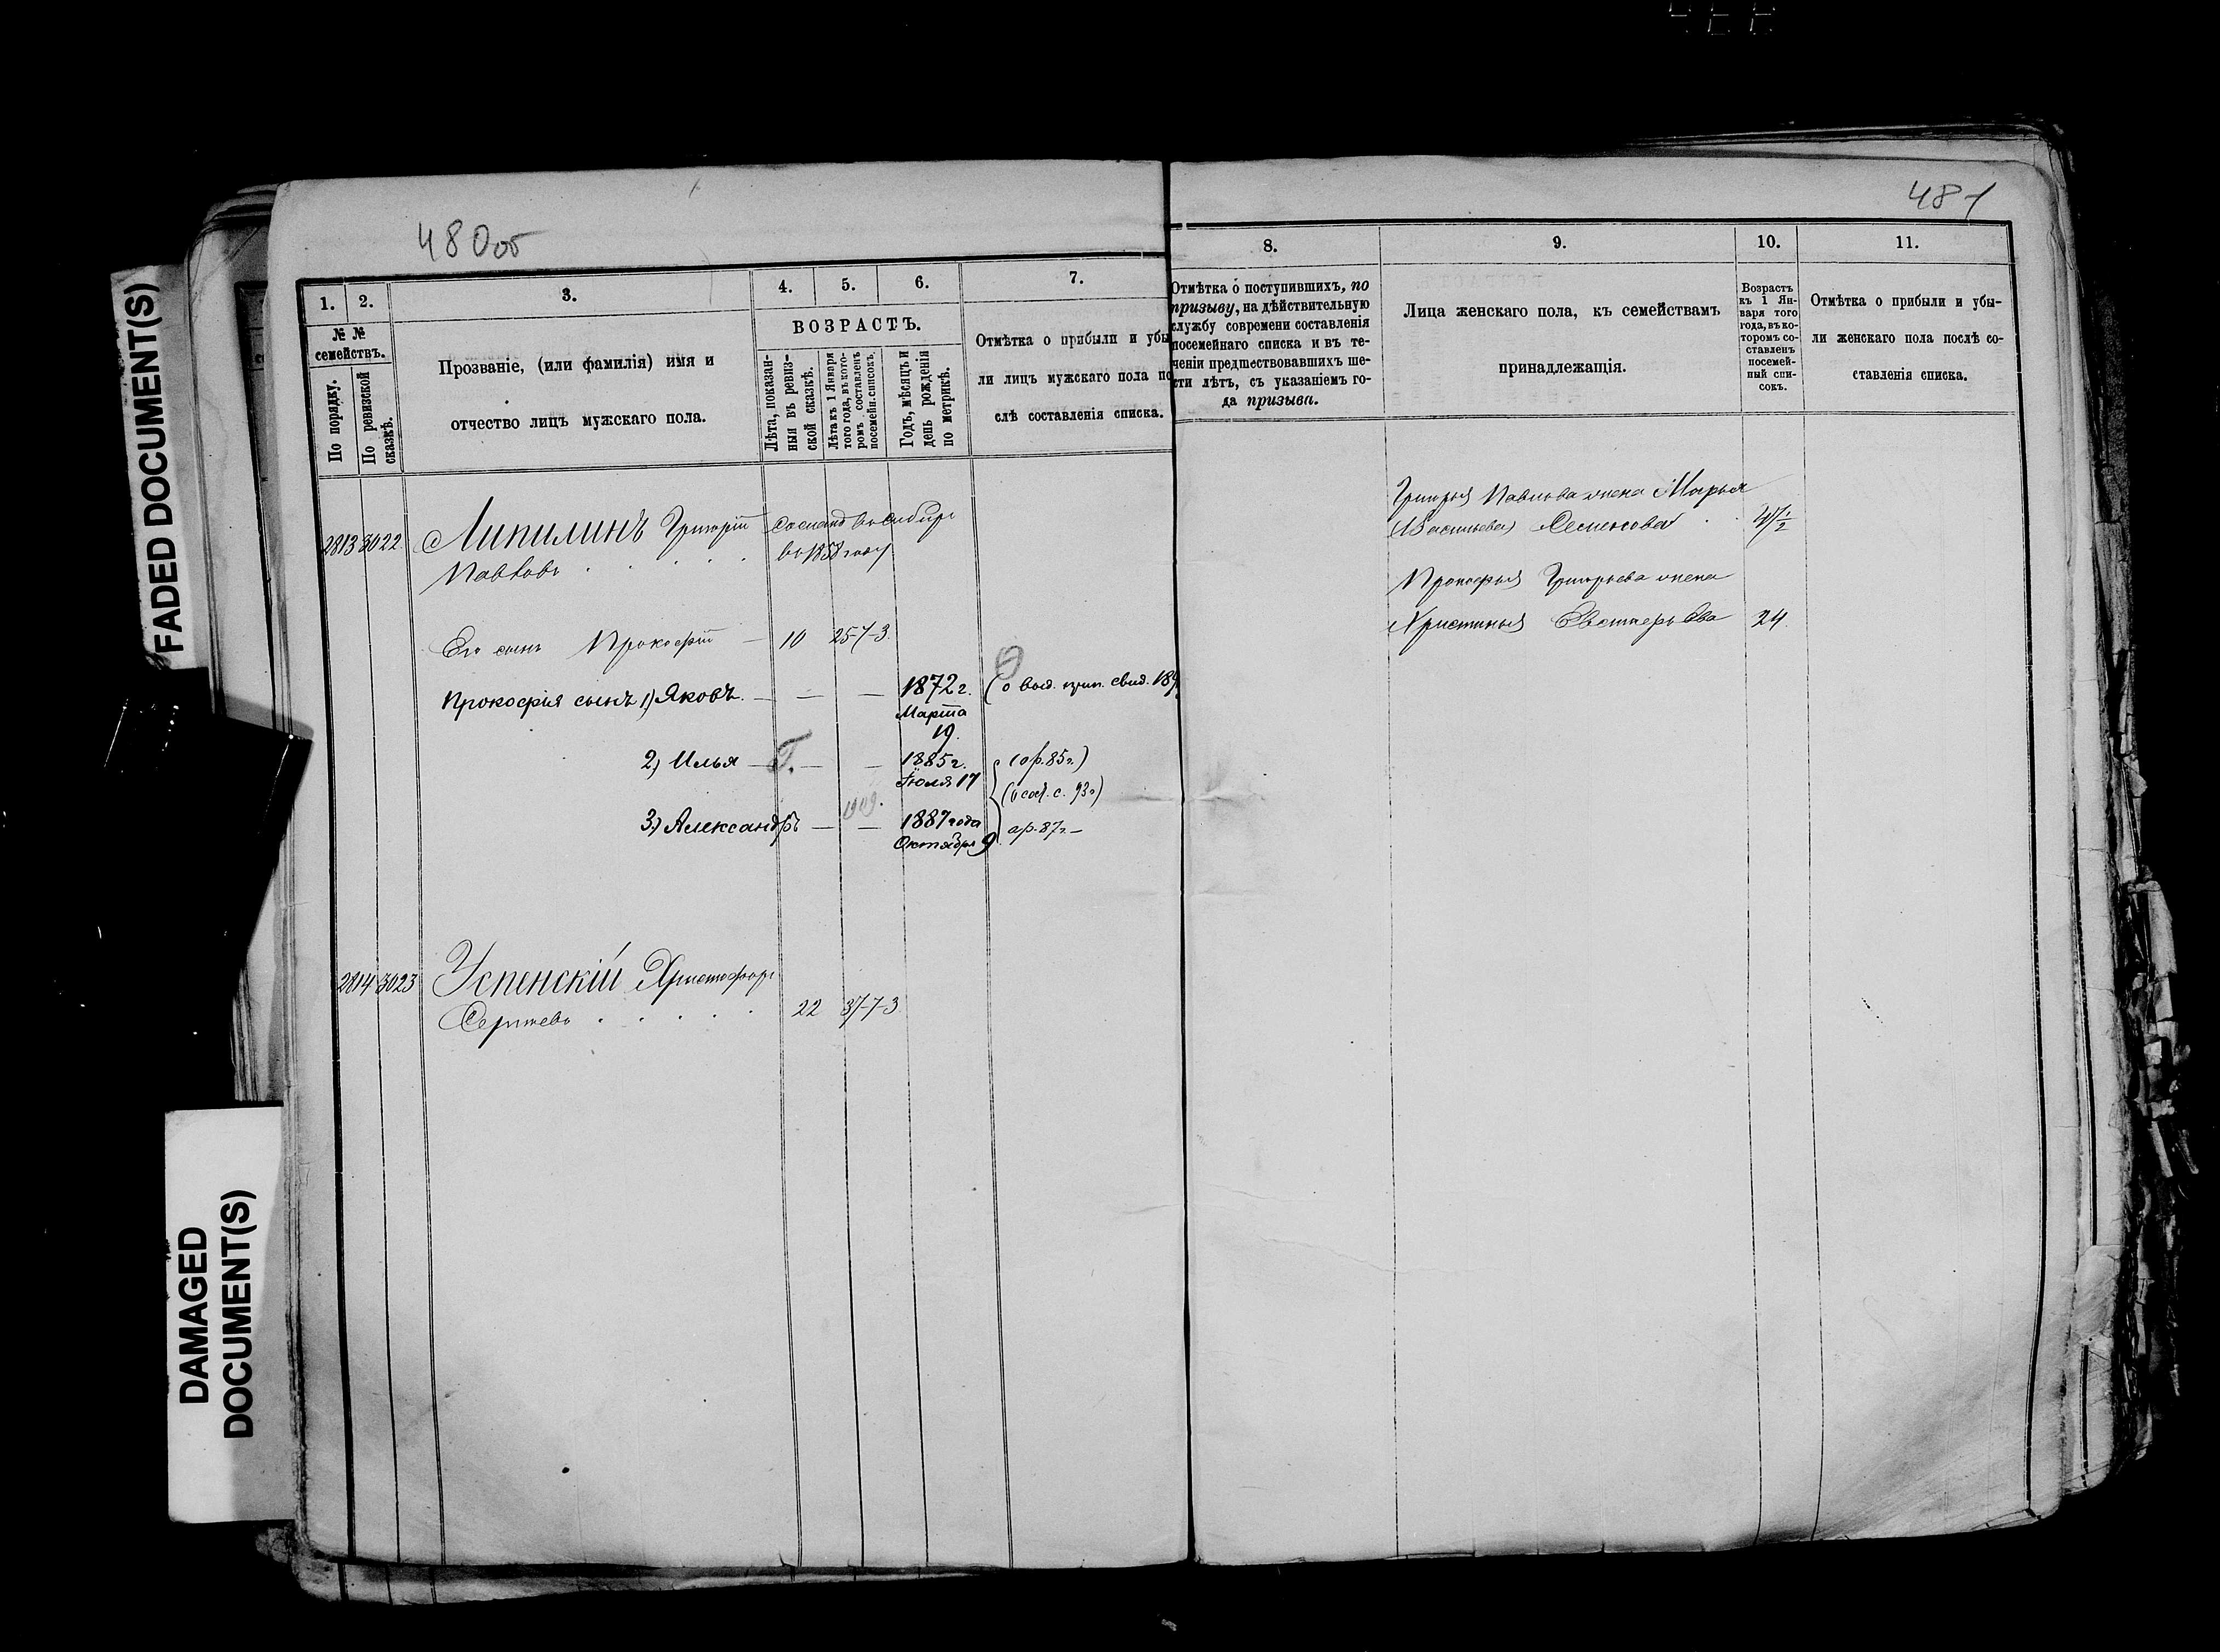 FADED DOCUMENT(S)
DAMAGED
DOCUMENT(S)
480об
1.
2.
3.
4.
5.
6.
7.
№ №
семействъ.
По порядку.
По ревизской
сказкѣ.
Прозваніе, (или фамилія) имя и
отчество лицъ мужскаго пола.
ВОЗРАСТЪ.
Лѣта, показан-
ныя въ ревиз-
ской сказкѣ.
Лѣта къ 1 Января
того года, въ кото-
ромъ составленъ
посемейн. списокъ.
Годъ, мѣсяцъ и
день рожденія
по метрикѣ.
Отмѣтка о прибыли и убы
ли лицъ мужскаго пола по
слѣ составленія списка.
2813 3022 Липилинъ Григорій
Павловъ
Сосланъ въ Сибирь
въ 1858 году
Его сынъ Прокофій 10 25-7-3
Прокофія сынъ 1) Яковъ. — — — 1872 г.
Марта
19.
(о выд. прип. свид. 189
2) Илья — Г. — — 1885 г.
Іюля 17
(ор. 85 г.)
3) Александръ — — 1887 года
Октября 9
1909.
ар. 87 г. —
2814 3023 Успенскій Христофоръ
Сергѣевъ 22 37-7-3
481
8.
9.
10.
11.
Отмѣтка о поступившихъ, по
призыву, на дѣйствительную
службу современи составленія
посемейнаго списка и въ те-
ченіи предшествовавшихъ ше-
сти лѣтъ, съ указаніемъ го-
да призыва.
Лица женскаго пола, къ семействамъ
принадлежащія.
Возрастъ
къ 1 Ян-
варя того
года, въ ко-
торомъ со-
ставленъ
посемей-
ный спи-
сокъ.
Отмѣтка о прибыли и убы-
ли женскаго пола послѣ со-
ставленія списка.
Григорья Павлова жена Марья
(Васильева) Семенова
Прокофья Григорьева жена
Христинья 24